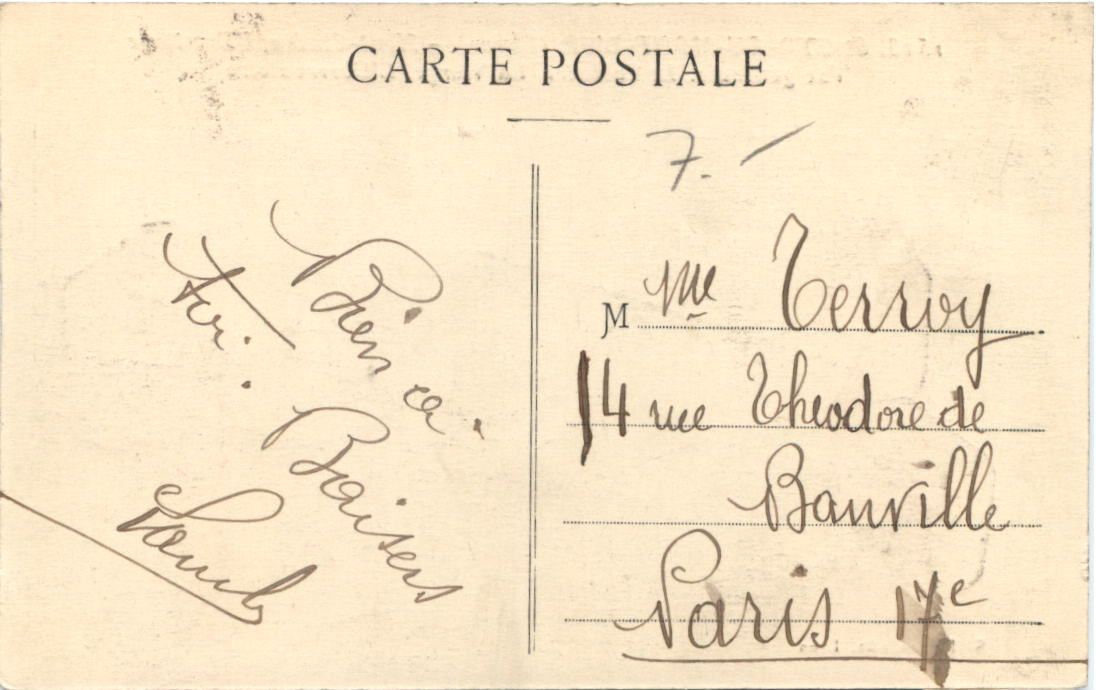 CARTE POSTALE
7.-
Bien à
toi.
Baisers
M Me Terroy
14 rue Theodore de
Banville
Paris 17e